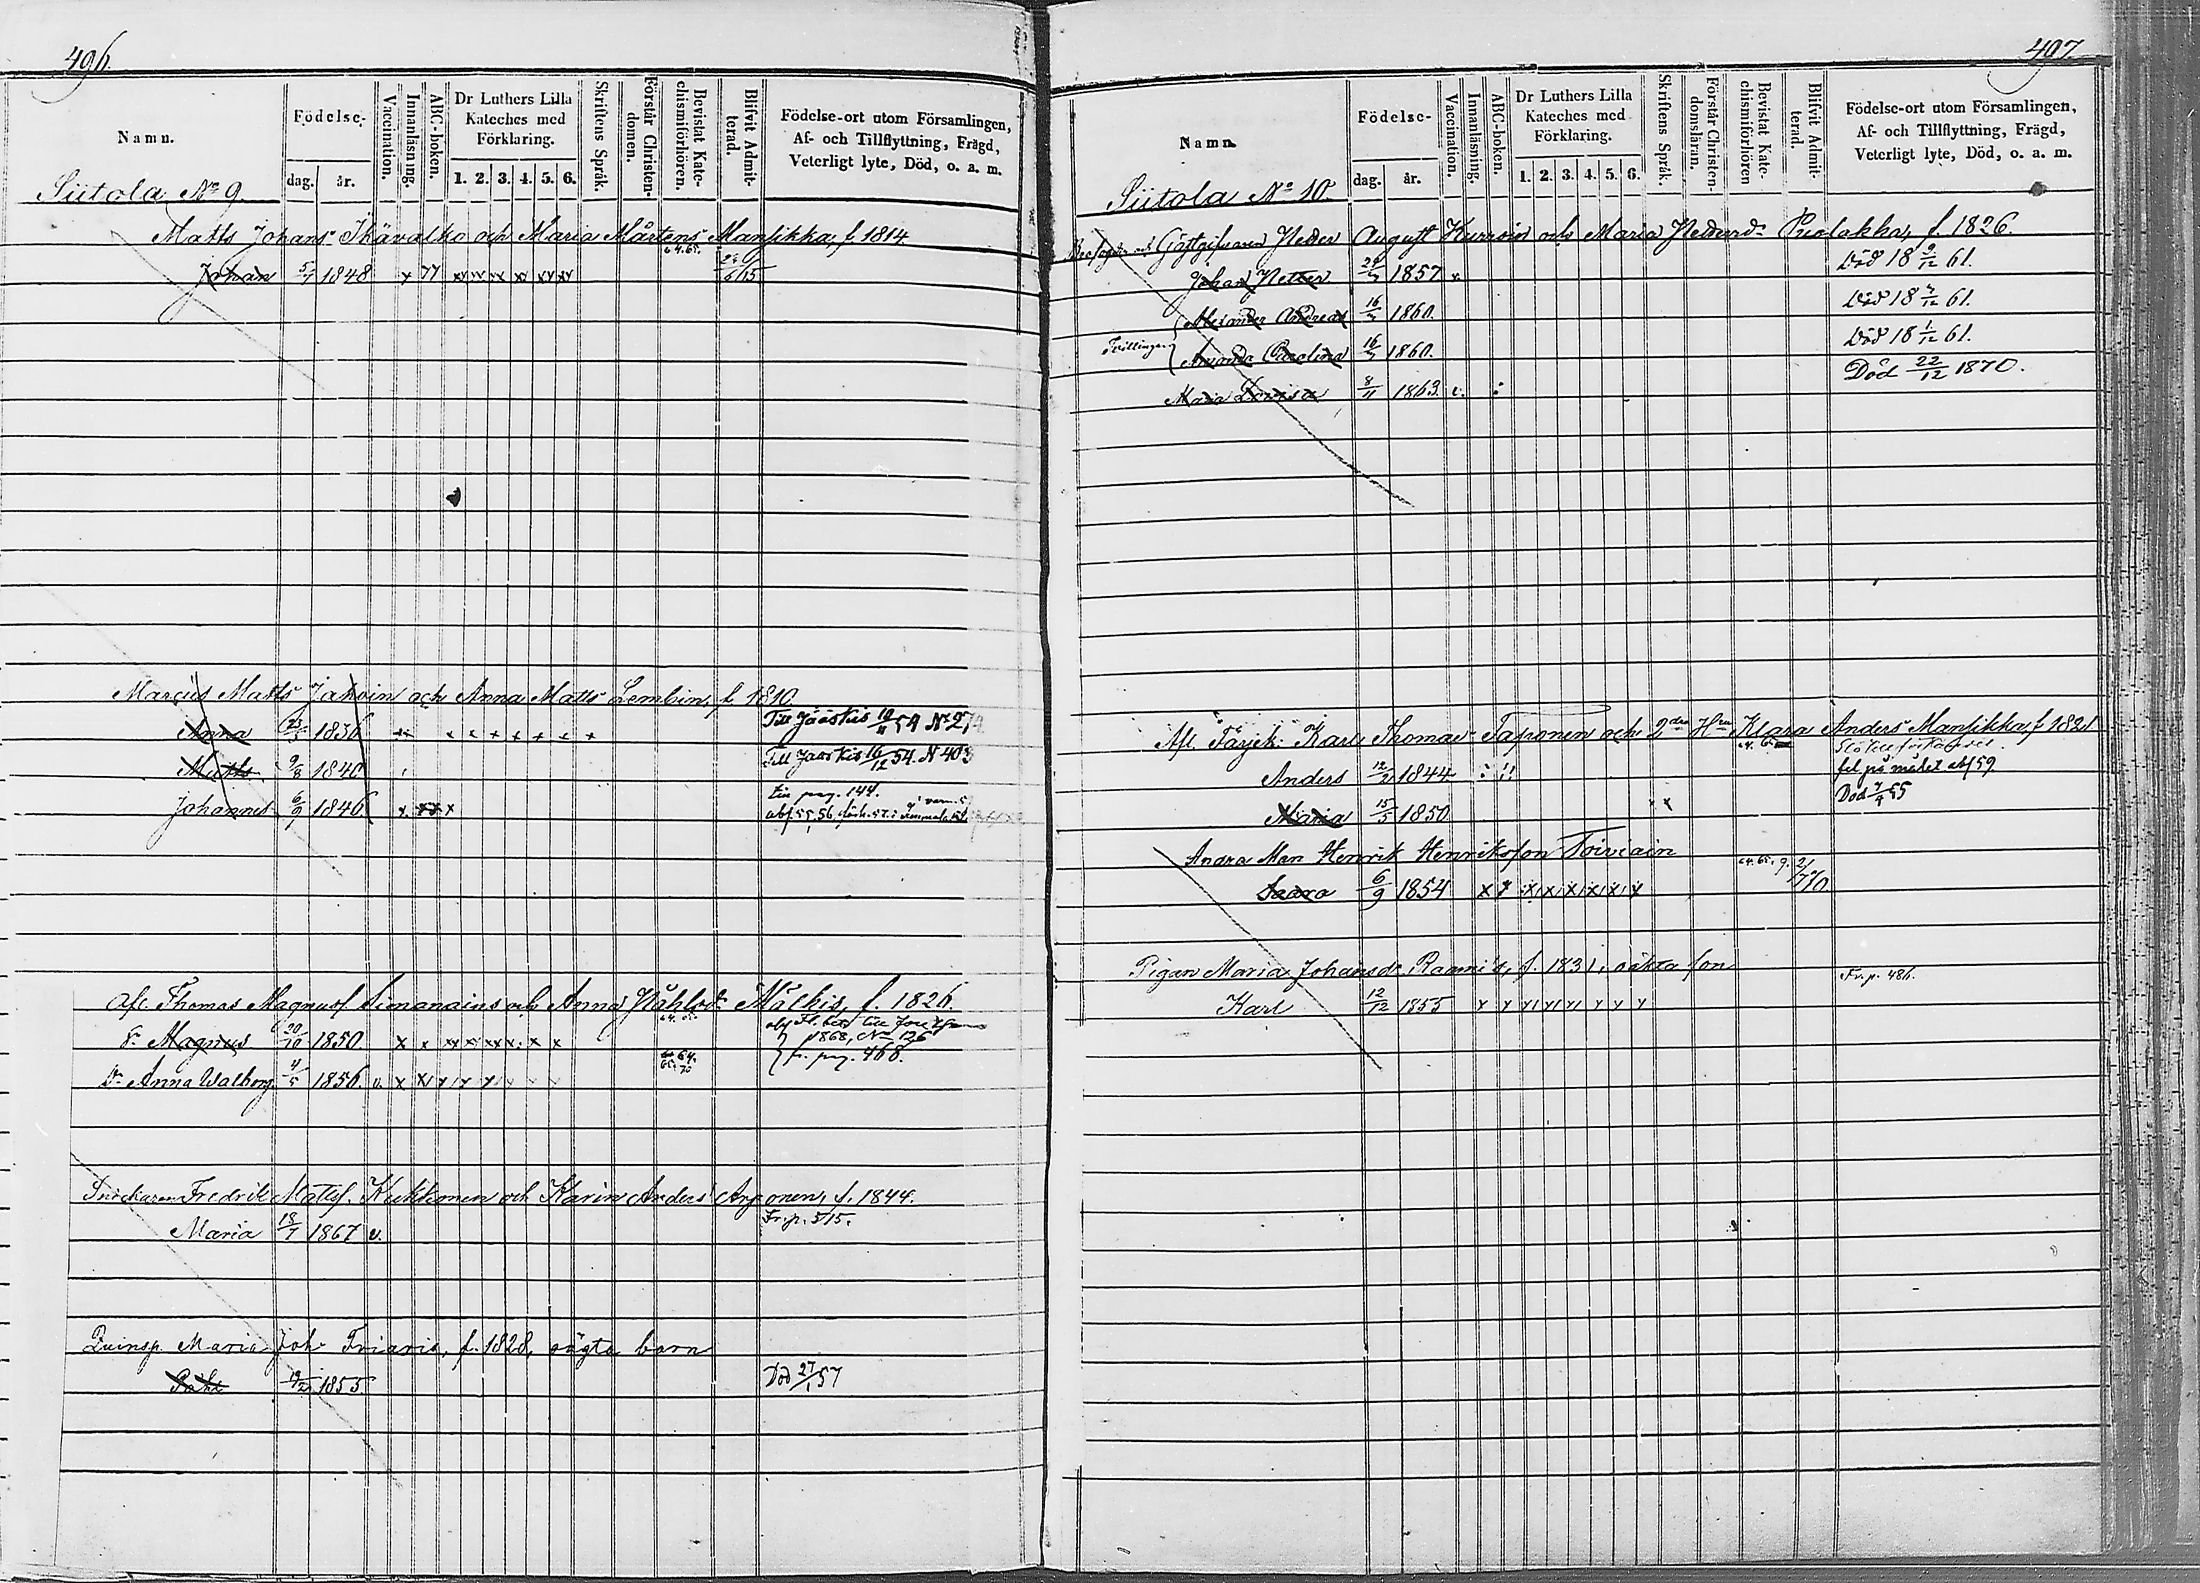 496.
Namn.
Födelse-
dag.
år.
Vaccination.
Innanläsning.
ABC-boken.
Dr Luthers Lilla Kateches med Förklaring.
1. 2. 3. 4. 5. 6.
Skriftens Språk.
Förstår Christendomen.
Bevistat Katechismiförhören.
Blifvit Admitterad.
Födelse-ort utom Församlingen, Af- och Tillflyttning, Frägd, Veterligt lyte, Död, o. a. m.
Siitola No 9.
Matts Johans Ikävalko och Maria Mårtens Mansikka, f. 1814
Johan 5/7 1848
Marcus Matts Jakoin och Anna Matts Lembin, f. 1810.
Anna 23/5 1836 Till Jääskis 54 No
Matts 9/8 1840 Till Jääskis 16/12 54. N 403
Johannes 6/9 1846 till pag. 144.
Afl. Thomas Magnusf. och Anna Mälkis, f. 1826.
Magnus 20/10 1850. 1868, No 126
Dr Anna Walborg 4/5 1856. v. fr. pag. 468.
Snickaren Fredrik Mattsf. Kukkonen och Karin Anders Arponen, f. 1844.
Maria 18/7 1867 v. Fr. p. 515.
Maria Joh. f. 1828, oägta barn
1855 Död 27/1 57
497.
Namn.
Födelse-
dag.
år.
Vaccination.
Innanläsning.
ABC-boken.
Dr Luthers Lilla Kateches med Förklaring.
1. 2. 3. 4. 5. 6.
Skriftens Språk.
Förstår Christendomsläran.
Bevistat Katechismiförhören
Blifvit Admitterad.
Födelse-ort utom Församlingen, Af- och Tillflyttning, Frägd, Veterligt lyte, Död, o. a. m.
Siitola No 10.
Gästgifvaren Petter August och Maria f. 1826.
Johan Petter 1857 Död 18 9/12 61.
Alexander Andreas 16/7 1860. Död 18 7/12 61.
Tvillingar
Amanda Carolina 16/7 1860. Död 18 1/12 61.
Maria Lovisa 8/11 1863. v. Död 22/12 1870.
Afl. Färjek. Karl Thomas Taponen och 2dra Hru Klara Anders Mansikka, f. 1821
Anders 12/2 1844 fel på målet abf 59.
Maria 15/5 1850 Död 55
Andra Man Henrik Henriksson Toiviain
Saara 6/9 1854
Pigan Maria Johansdr f. 1831, oäkta son Fr. p. 486.
Karl 12/12 1855